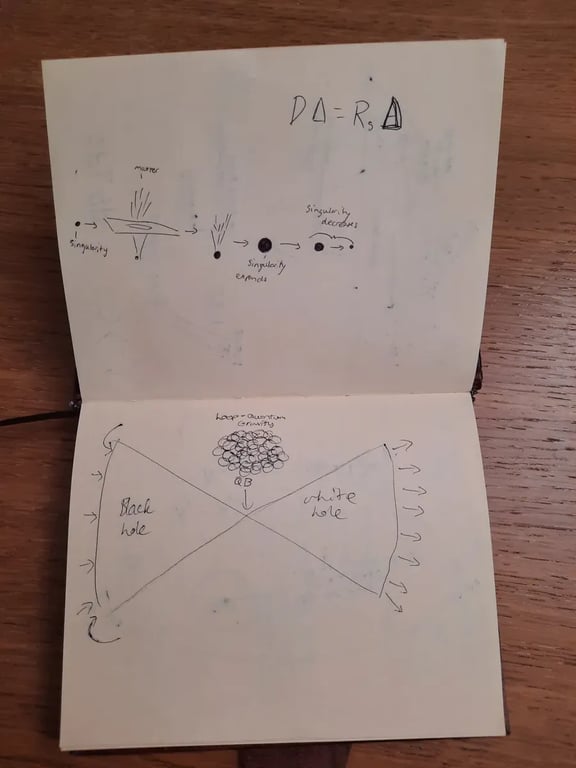 D Δ = Rs Δ
matter
Singularity
Singularity
expands
Singularity
decreases
Loop-Quantum
Gravity
QB
Black
hole
white
hole